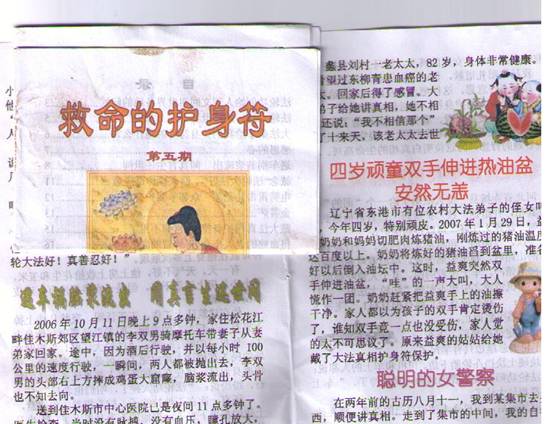 救命的护身符
第五期
轮大法好！真善忍好！”
2006 年 10 月 11 日晚上 9 点多钟，家住松花江
畔佳木斯郊区望江镇的李双男骑摩托车带妻子从妻
弟家回来。途中，因为酒后行驶，并以每小时 100
公里的速度行驶，一瞬间，两人都被抛出去，李双
男的头部右上方摔成鸡蛋大窟窿，脑浆流出，头骨
也不知去向。
送到佳木斯市中心医院已是夜间 11 点多钟了。
蠡县刘村一老太太，82 岁，身体非常健康。
望过东柳青患血癌的老
太。回家后得了感冒。大
弟子给她讲真相，她不相
还说：“我不相信那个”
了十来天，该老太太去世
四岁顽童双手伸进热油盆
安然无恙
辽宁省东港市有位农村大法弟子的侄女叫
，今年四岁，特别顽皮。2007 年 1 月 29 日，益
奶奶和妈妈切肥肉炼猪油，刚炼过的猪油温度
达百度以上。奶奶将炼好的猪油舀到盆里，准备
好以后倒入油坛中。这时，益爽突然双
手伸进油盆，“哇”的一声大叫，大人
慌作一团。奶奶赶紧把益爽手上的油擦
干净。家人都以为孩子的双手肯定烫伤
了，谁知双手竟一点也没受伤，家人觉
的太不可思议了。原来益爽的姑姑给她
戴了大法真相护身符保护。
聪明的女警察
在两年前的古历八月十一，我到某集市去
西，顺便讲真相。走到了集市的中间，我的自